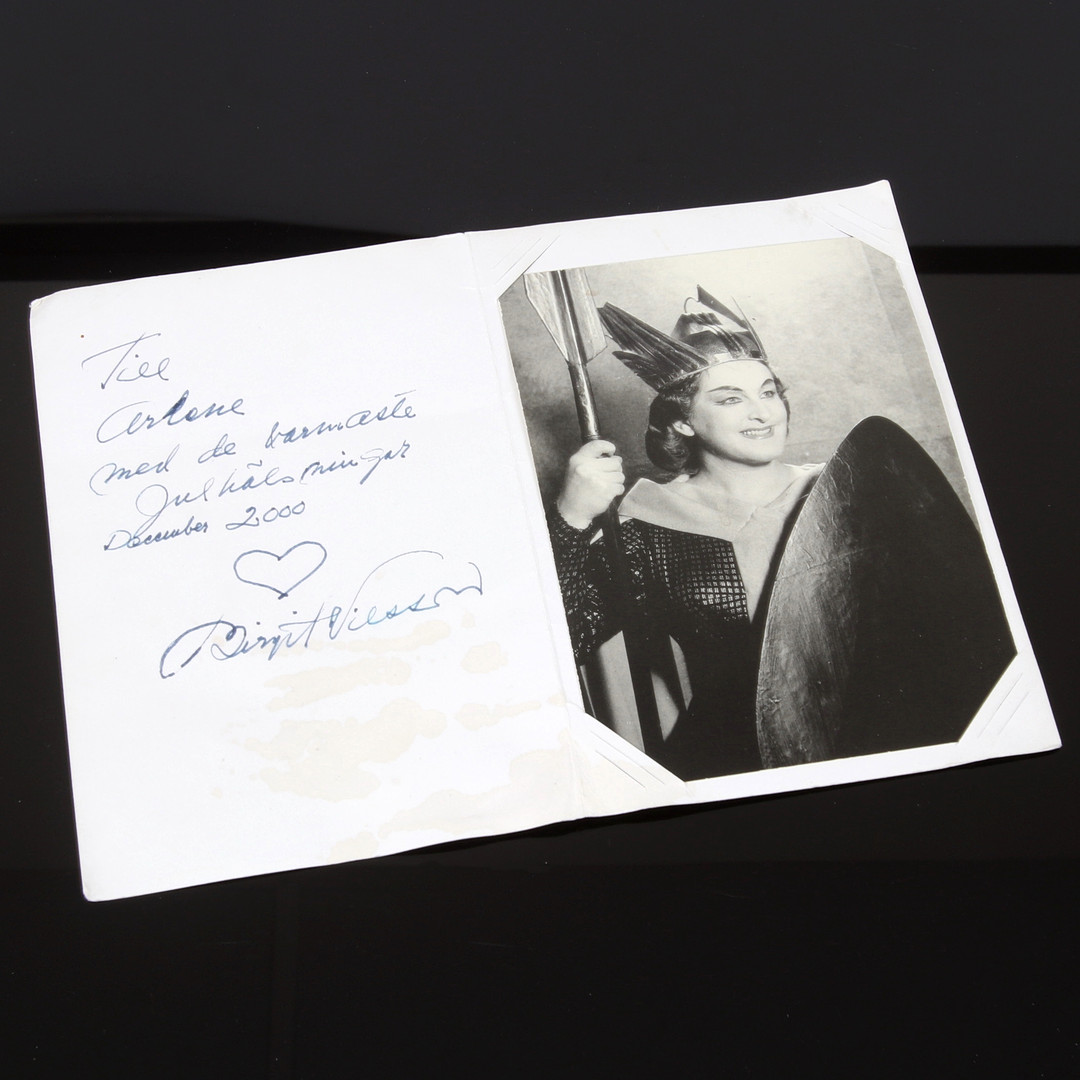 Till
Arlene
med de varmaste
Julhälsningar
December 2000
Birgit Nilsson